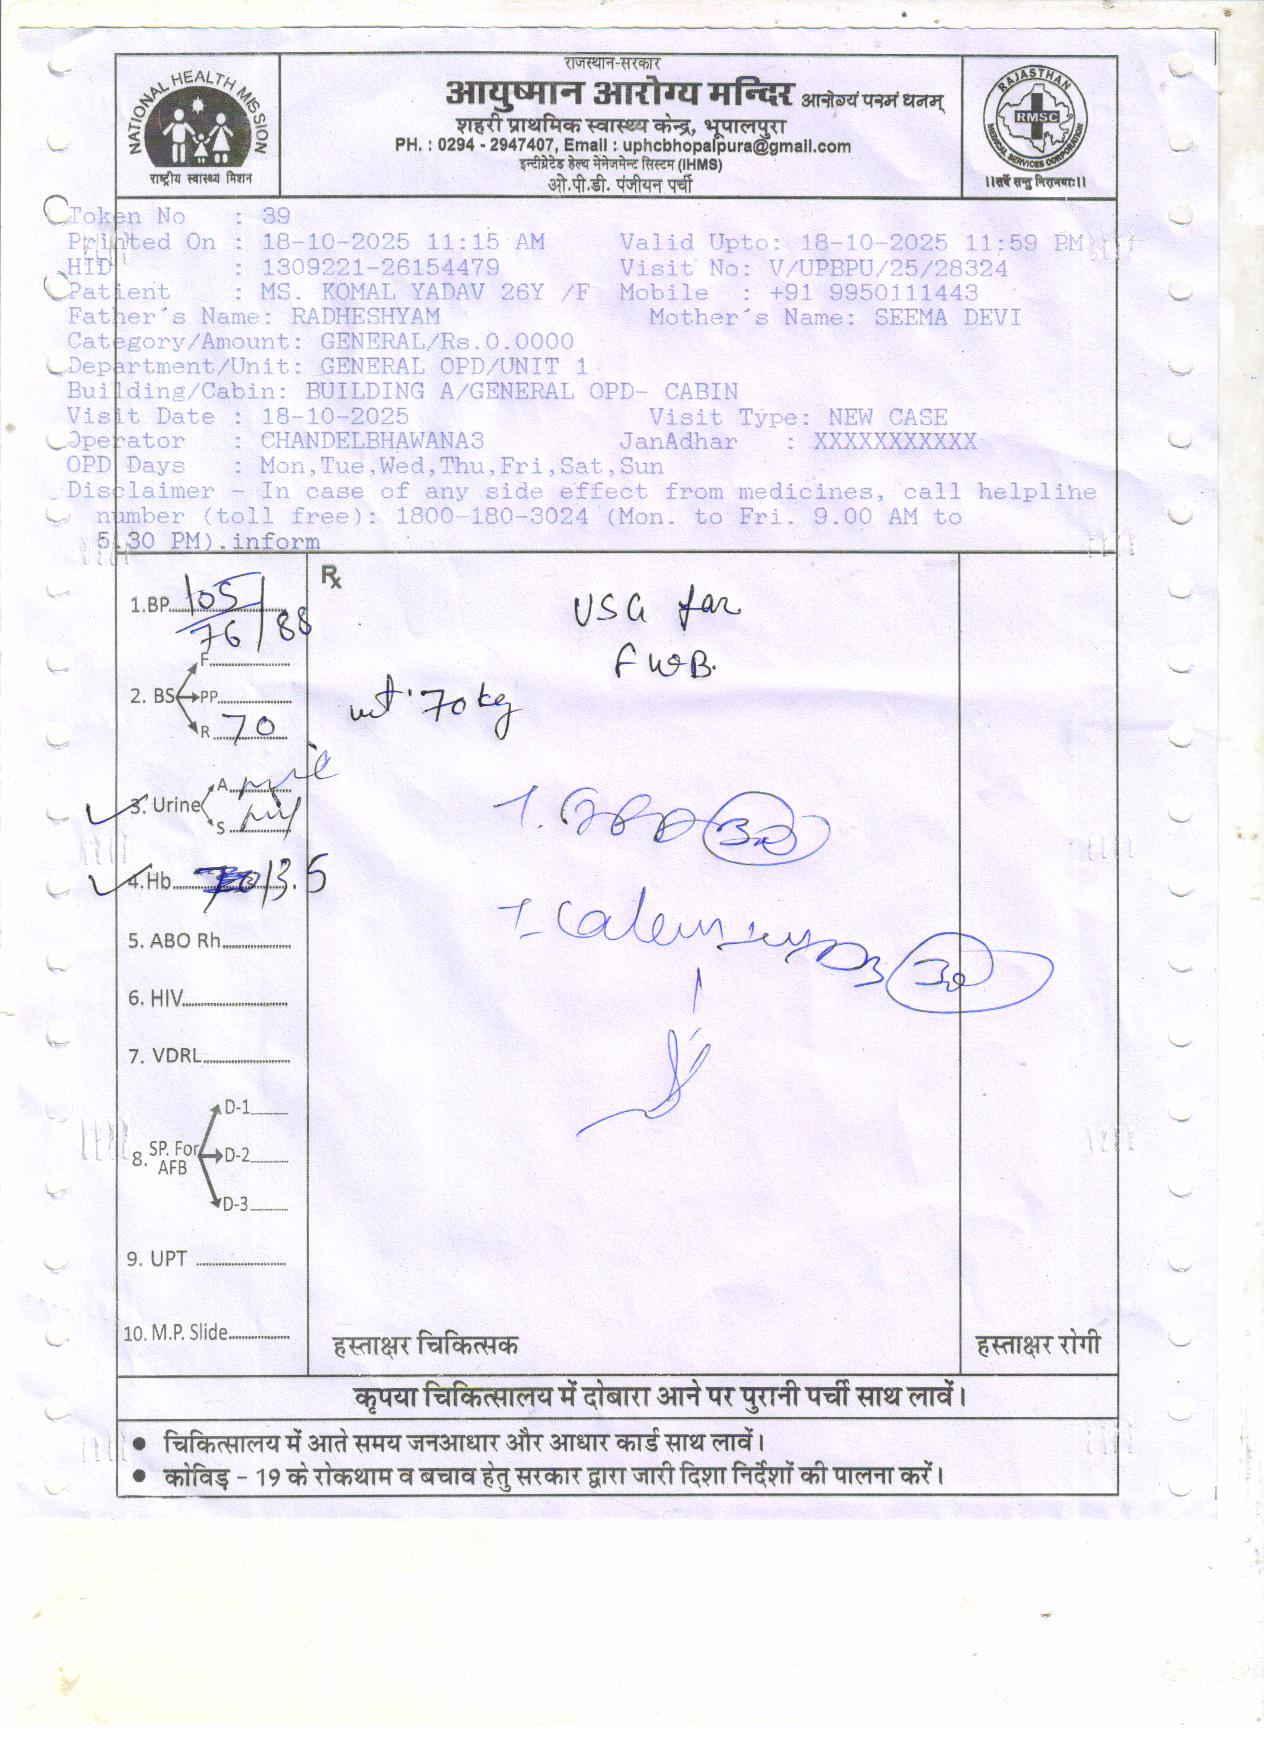 राजस्थान-सरकार
आयुष्मान आरोग्य मन्दिर आरोग्यं परमं धनम्
शहरी प्राथमिक स्वास्थ्य केन्द्र, भूपालपुरा
PH. : 0294 - 2947407, Email : uphcbhopalpura@gmail.com
इन्टीग्रेटेड हेल्थ मेनेजमेन्ट सिस्टम (IHMS)
ओ.पी.डी. पंजीयन पर्ची
NATIONAL HEALTH MISSION
राष्ट्रीय स्वास्थ्य मिशन
RAJASTHAN
RMSC
MEDICAL SERVICES CORPORATION
।।सर्वे सन्तु निरामयाः।।
Token No : 39
Printed On : 18-10-2025 11:15 AM Valid Upto: 18-10-2025 11:59 PM
HID : 1309221-26154479 Visit No: V/UPBPU/25/28324
Patient : MS. KOMAL YADAV 26Y /F Mobile : +91 9950111443
Father's Name: RADHESHYAM Mother's Name: SEEMA DEVI
Category/Amount: GENERAL/Rs.0.0000
Department/Unit: GENERAL OPD/UNIT 1
Building/Cabin: BUILDING A/GENERAL OPD- CABIN
Visit Date : 18-10-2025 Visit Type: NEW CASE
Operator : CHANDELBHAWANA3 JanAdhar : XXXXXXXXXXX
OPD Days : Mon,Tue,Wed,Thu,Fri,Sat,Sun
Disclaimer - In case of any side effect from medicines, call helpline
number (toll free): 1800-180-3024 (Mon. to Fri. 9.00 AM to
5.30 PM).inform
1.BP 105/76/88
2. BS
F
PP
R 70
3. Urine
A
S
4. Hb 13.5
5. ABO Rh
6. HIV
7. VDRL
8. SP. For AFB
D-1
D-2
D-3
9. UPT
10. M.P. Slide
Rx
USG for
FWB.
wt. 70 kg
हस्ताक्षर चिकित्सक
हस्ताक्षर रोगी
कृपया चिकित्सालय में दोबारा आने पर पुरानी पर्ची साथ लावें।
● चिकित्सालय में आते समय जनआधार और आधार कार्ड साथ लावें।
● कोविड़ - 19 के रोकथाम व बचाव हेतु सरकार द्वारा जारी दिशा निर्देशों की पालना करें।